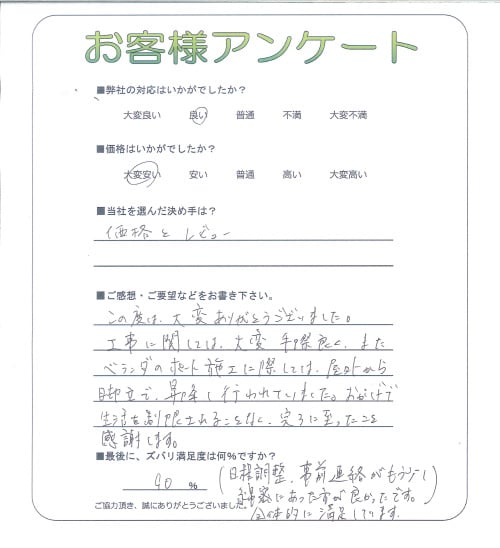 お客様アンケート
■弊社の対応はいかがでしたか？
大変良い 良い 普通 不満 大変不満
■価格はいかがでしたか？
大変安い 安い 普通 高い 大変高い
■当社を選んだ決め手は？
価格とレビュー
■ご感想・ご要望などをお書き下さい。
この度は、大変ありがとうございました。
工事に関しては、大変手際良く、また
ベランダのシート施工に際しては、屋外から
脚立で、昇降し行われていました。おかげで
生活を制限されることなく、完了に至ったことを
感謝します。
■最後に、ズバリ満足度は何％ですか？
90 %
(日程調整、事前連絡がもう少し
綿密にあった方が良かったです。)
全体的に満足しています。
ご協力頂き、誠にありがとうございました。